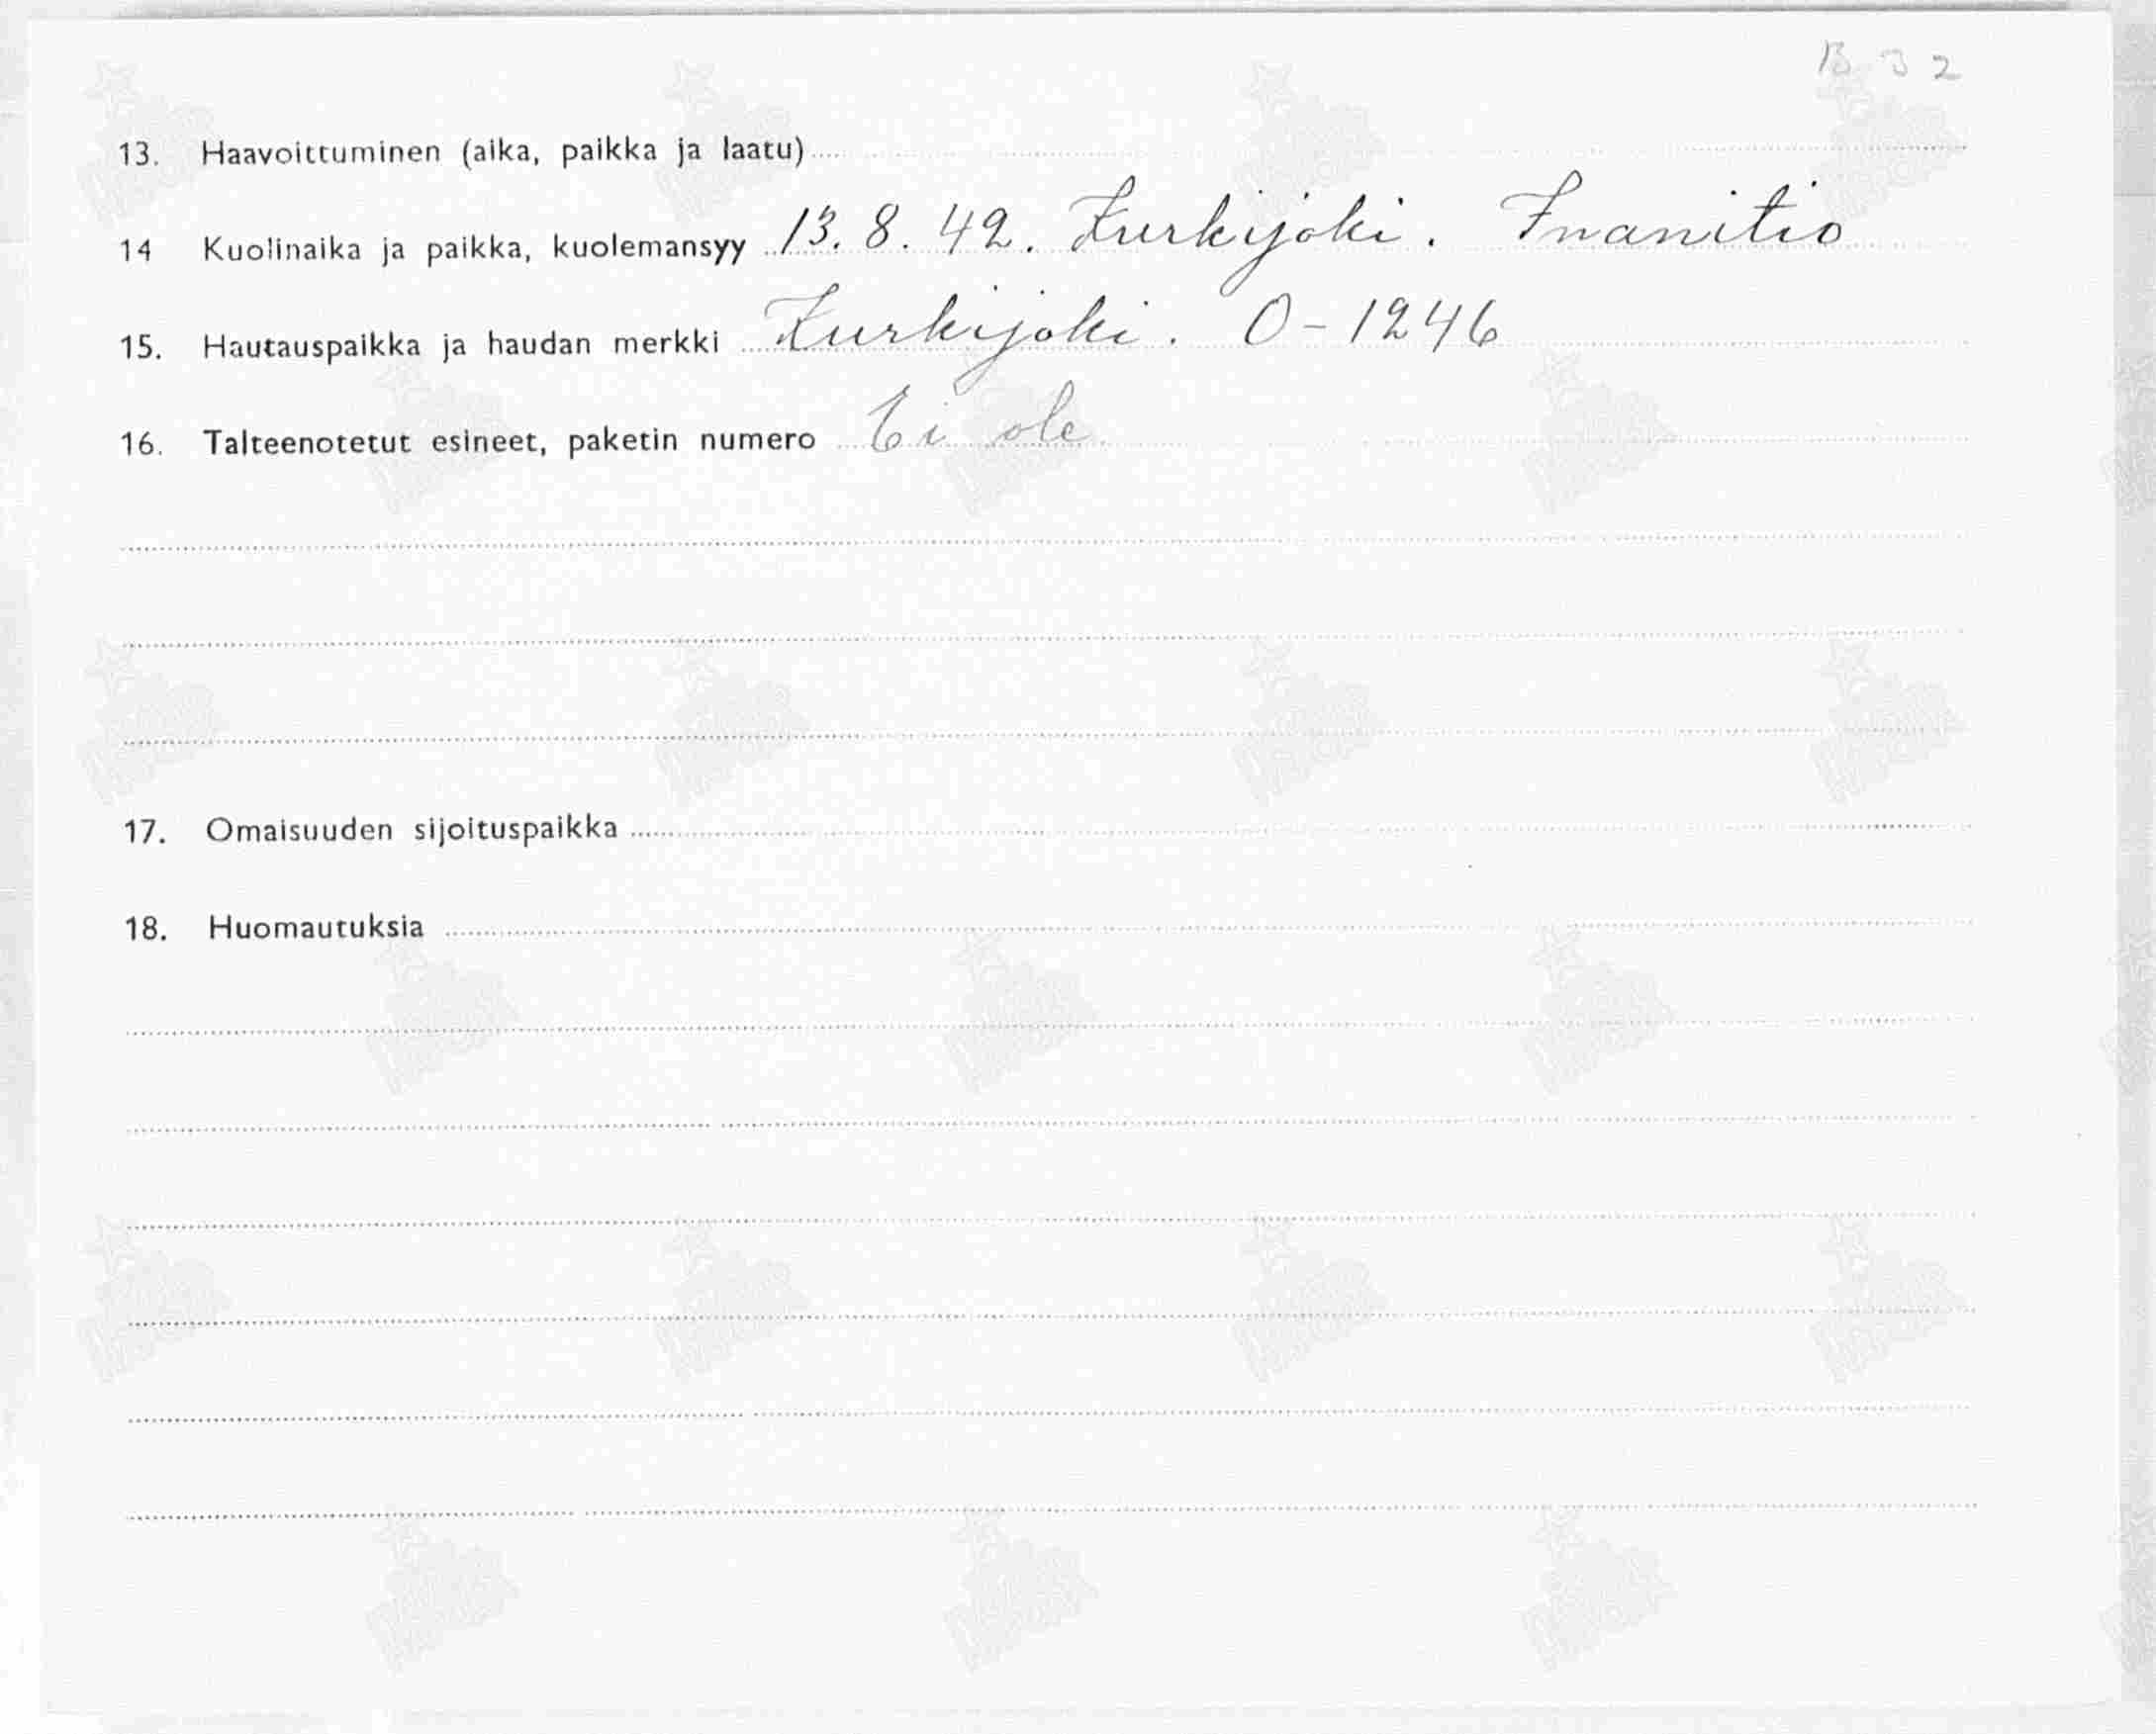 B 32
13. Haavoittuminen (aika, paikka ja laatu)
14 Kuolinaika ja paikka, kuolemansyy 13. 8. 42. Kurkijoki. Inanitio
15. Hautauspaikka ja haudan merkki Kurkijoki. O-1246
16. Talteenotetut esineet, paketin numero Ei ole
17. Omaisuuden sijoituspaikka
18. Huomautuksia